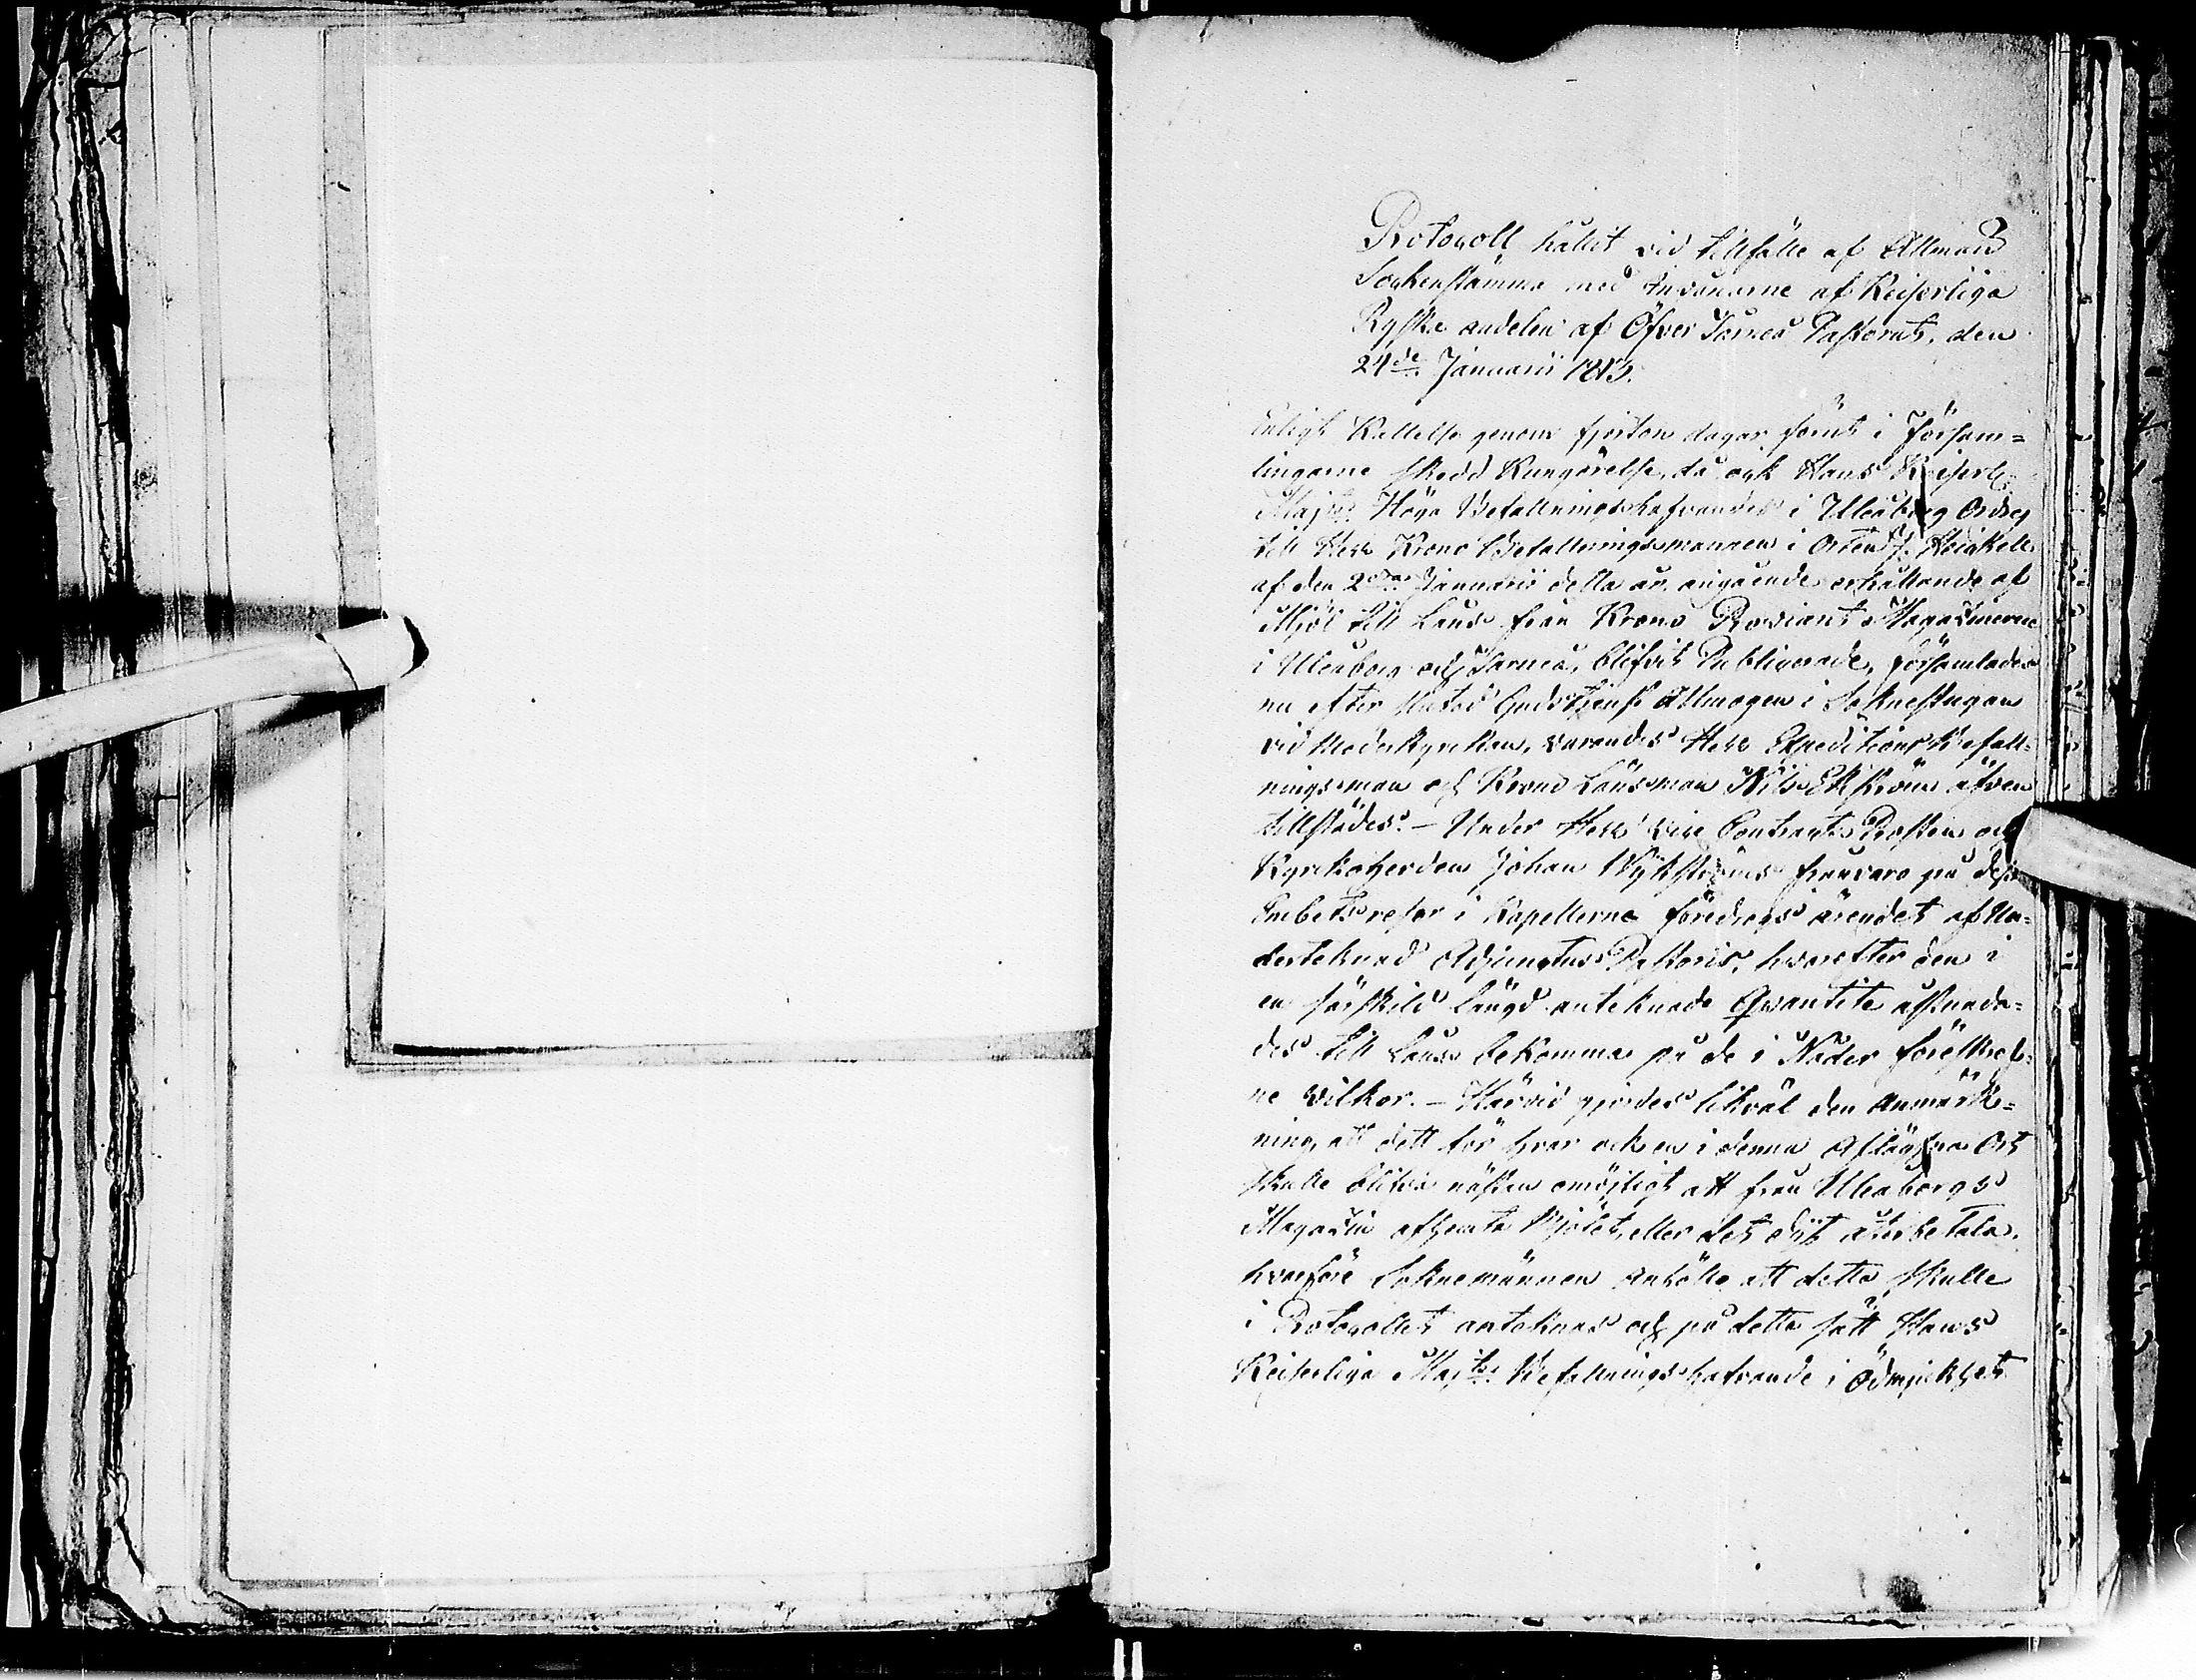 Protocoll hållit vid tillfälle af Allmän
Sockenstämma med Invånarne af Keiserliga
Ryska andelen af Öfver Torneå Pastorat, den
24de Januarii 1813.
Enligt Kallelse genom fjorton dagar förut i Försam=
lingarne skedd Kungörelse, då ock Hans Keiserl.
Maj:ts Höga Befallningshafvandes i Uleåborg Ordres
till Herr Krono Befallningsmannen i Orten J. Heickell
af den 2dra Januarii detta år, angående erhållande af
Mjöl till Låns från Krono Proviant Magasinerne
i Uleåborg och Torneå, blifvit Publicerade, församlades
nu efter slutad Gudstjenst Allmogen i Soknestugan
vid Moderkyrckan, varandes Herr Expeditions Befall=
ningsman och Krono Länsman Nils Ekström äfven
tillstädes. – Under Herr Vice Contracts Prosten och
Kyrkoherden Johan Wijkströms frånvaro på dess
Embetsresor i Kapellerne föredrogs ärendet af Un=
dertecknad Adjunctus Pastoris, hvarefter den i
en särskild Längd anteknade Qvantité åstunda=
des till Låns bekomma på de i Nåder föreskref=
ne vilkor. – Härvid gjordes likväl den Anmärk=
ning, att dett för hvar och en i denna Aflägsna Ort
skulle blifva nästan omöjligt att från Uleåborgs
Magasin afhemta Mjölet, eller det dijt återbetala,
hvarföre Soknemännen anhöllo att detta skulle
i Protocollet anteknas och på detta sätt Hans
Keiserliga Maj:ts Befallningshafvande i Ödmjukhet